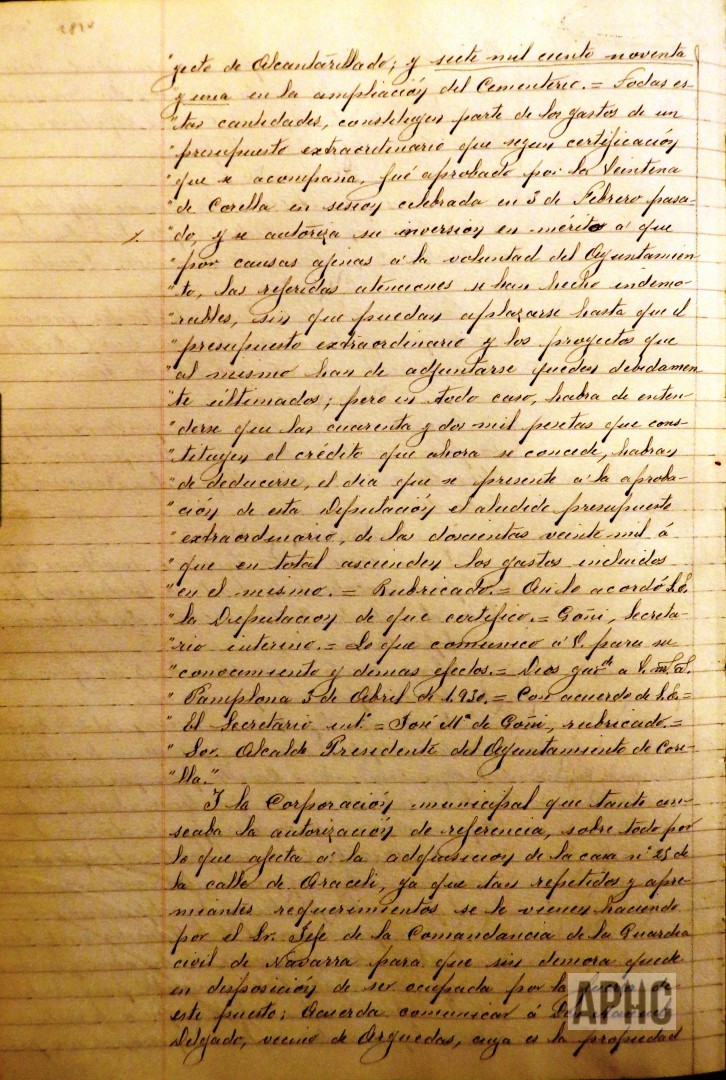 "yecto de Alcantarillado; y siete mil ciento noventa
y una en la ampliación del Cementerio.= Todas es-
"tas cantidades, constituyen parte de los gastos de un
"presupuesto extraordinario que según certificación
"que se acompaña, fué aprobado por la Veintena
"de Corella en sesion celebrada en 3 de Febrero pasa-
"do, y se autoriza su inversion en mérito a que
"por causas ajenas a la voluntad del Ayuntamien
"to, las referidas atenciones se han hecho indemo-
"rables, sin que puedan aplazarse hasta que el
"presupuesto extraordinario y los proyectos que
"al mismo han de adjuntarse queden debidamen
"te últimados; pero en todo caso, habra de enten-
"derse que las cuarenta y dos mil pesetas que cons-
"tituyen el crédito que ahora se concede, habran
"de deducirse, el dia que se presente á la aproba-
"ción de esta Diputación el aludido presupuesto
"extraordinario, de las doscientas veinte mil á
"que en total ascienden los gastos incluidos
"en el mismo.= Rubricado.= Asi lo acordó S.E.
"la Diputacion de que certifico.= Goñi, Secreta-
"rio interino.= Lo que comunico a V. para su
"conocimiento y demas efectos.= Dios gue a V. m. a.
"Pamplona 3 de Abril de 1.930.= Con acuerdo de S.E.=
"El Secretario int.= José Mª de Goñi, rubricado.=
"Sor. Alcalde Presidente del Ayuntamiento de Core-
"lla."
Y la Corporación municipal que tanto an-
seaba la autorización de referencia, sobre todo por
lo que afecta a la adquisicion de la casa nº 25 de
la calle de Araceli, ya que tan repetidos y apre-
miantes requerimientos se le vienen haciendo
por el Sr. Jefe de la Comandancia de la Guardia
civil de Navarra para que sin demora quede
en disposición de ser ocupada por la
este puesto; Acuerda comunicar á
Delgado, vecino de Arguedas, cuya es la propiedad
APHC